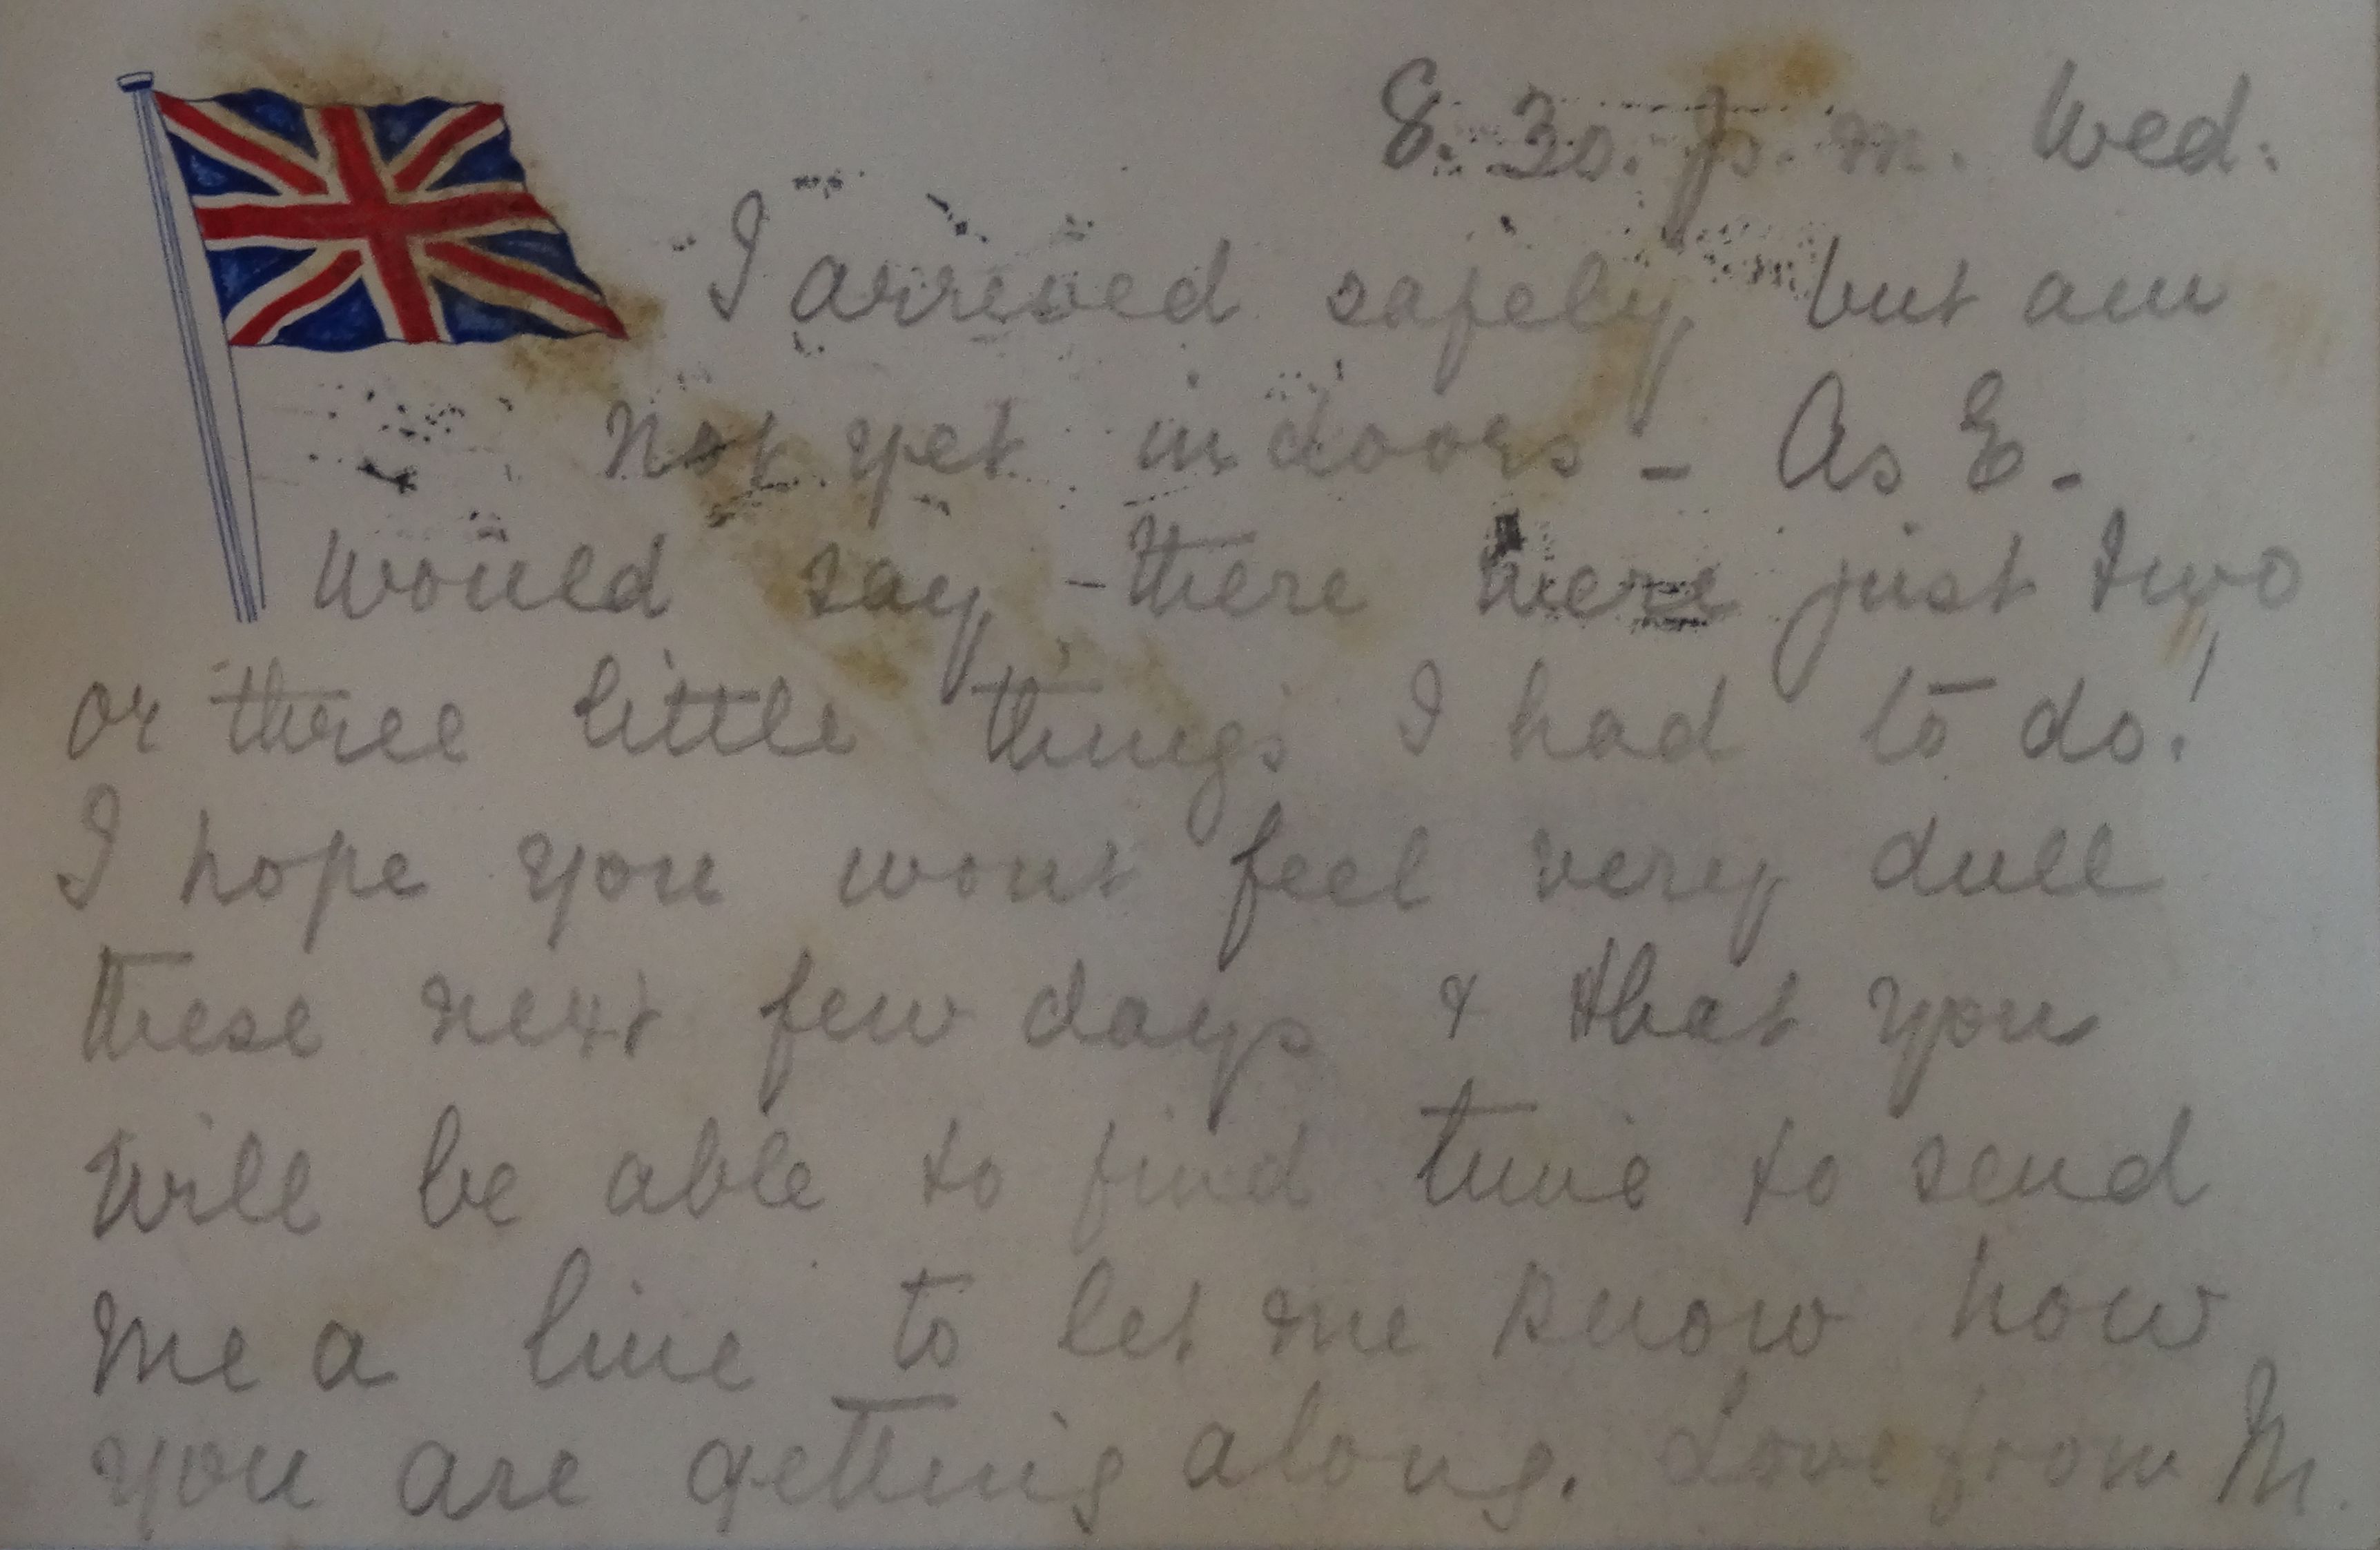 8.30. p.m. Wed.
I arrived safely but am
not yet indoors - As E.
would say - there were just two
or three little things I had to do!
I hope you wont feel very dull
these next few days & that you
will be able to find time to send
me a line to let me know how
you are getting along. Love from M.